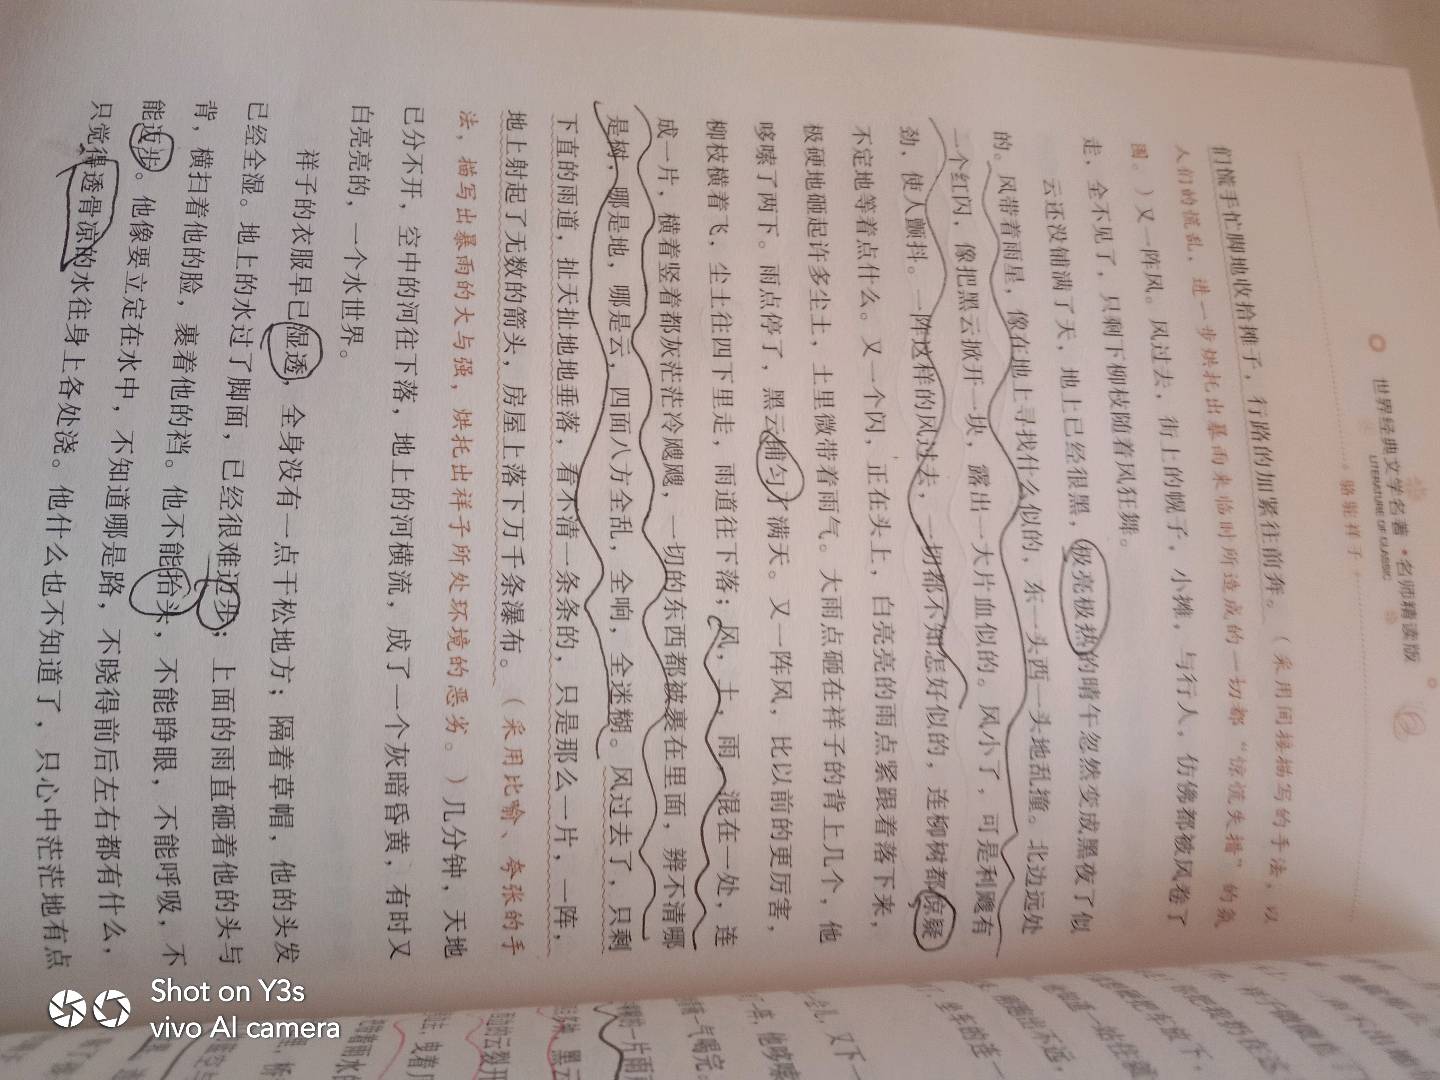 世界经典文学名著·名师精读版
LITERATURE OF CLASSIC
骆驼祥子
们慌手忙脚地收拾摊子，行路的加紧往前奔。（采用间接描写的手法，以
人们的慌乱，进一步烘托出暴雨来临时所造成的一切都“惊慌失措”的氛
围。）又一阵风。风过去，街上的幌子，小摊，与行人，仿佛都被风卷了
走，全不见了，只剩下柳枝随着风狂舞。
云还没铺满了天，地上已经很黑，极亮极热的晴午忽然变成黑夜了似
的。风带着雨星，像在地上寻找什么似的，东一头西一头地乱撞。北边远处
一个红闪，像把黑云掀开一块，露出一大片血似的。风小了，可是利飕有
劲，使人颤抖。一阵这样的风过去，一切都不知怎好似的，连柳树都惊疑
不定地等着点什么。又一个闪，正在头上，白亮亮的雨点紧跟着落下来，
极硬地砸起许多尘土，土里微带着雨气。大雨点砸在祥子的背上几个，他
哆嗦了两下。雨点停了，黑云铺匀了满天。又一阵风，比以前的更厉害，
柳枝横着飞，尘土往四下里走，雨道往下落；风，土，雨，混在一处，连
成一片，横着竖着都灰茫茫冷飕飕，一切的东西都被裹在里面，辨不清哪
是树，哪是地，哪是云，四面八方全乱，全响，全迷糊。风过去了，只剩
下直的雨道，扯天扯地地垂落，看不清一条条的，只是那么一片，一阵，
地上射起了无数的箭头，房屋上落下万千条瀑布。（采用比喻、夸张的手
法，描写出暴雨的大与强，烘托出祥子所处环境的恶劣。）几分钟，天地
已分不开，空中的河往下落，地上的河横流，成了一个灰暗昏黄，有时又
白亮亮的，一个水世界。
祥子的衣服早已湿透，全身没有一点干松地方；隔着草帽，他的头发
已经全湿。地上的水过了脚面，已经很难迈步；上面的雨直砸着他的头与
背，横扫着他的脸，裹着他的裆。他不能抬头，不能睁眼，不能呼吸，不
能迈步。他像要立定在水中，不知道哪是路，不晓得前后左右都有什么，
只觉得透骨凉的水往身上各处浇。他什么也不知道了，只心中茫茫地有点
Shot on Y3s
vivo AI camera